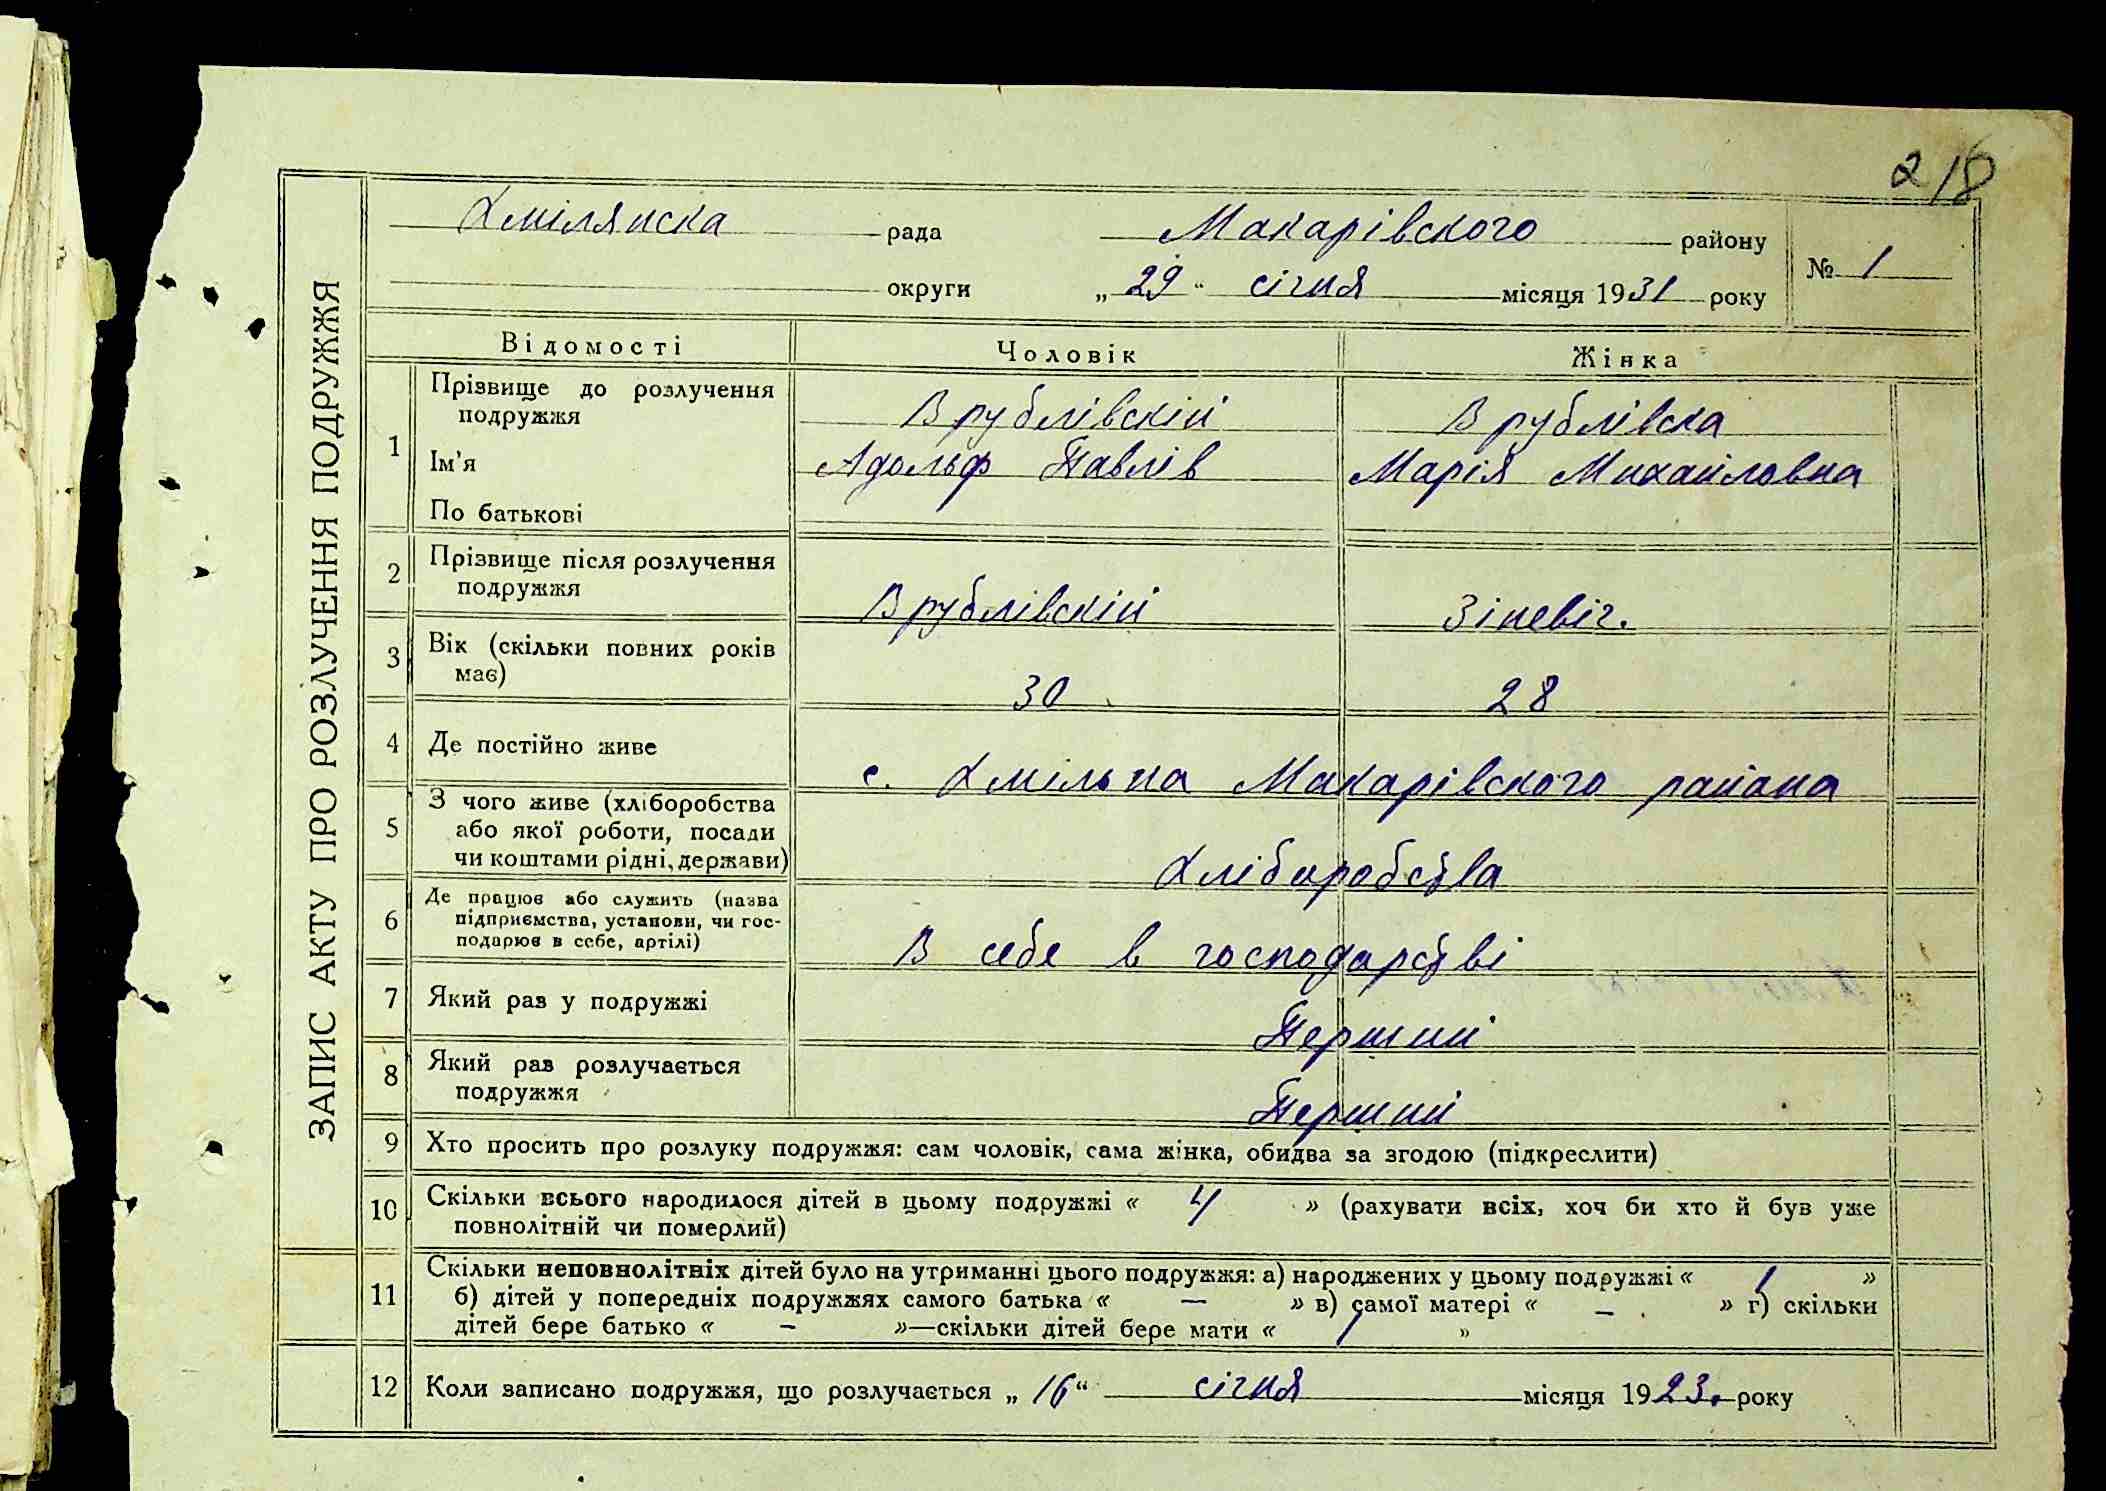 218
ЗАПИС АКТУ ПРО РОЗЛУЧЕННЯ ПОДРУЖЖЯ
Хмілянска рада Макарівского району № 1
округи „ 29 “ січня місяця 1931 року
Відомості Чоловік Жінка
1 Прізвище до розлучення
подружжя Врублівскій Врублівска
Ім'я Адольф Павлів Марія Михайловна
По батькові
2 Прізвище після розлучення
подружжя Врублівскій Зіневіч.
3 Вік (скільки повних років
має) 30 28
4 Де постійно живе с. Хмільна Макарівского района
5 З чого живе (хліборобства
або якої роботи, посади
чи коштами рідні, держави) Хліборобства
6 Де працює або служить (назва
підприємства, установи, чи гос-
подарює в себе, артілі) В себе в господарстві
7 Який раз у подружжі Перший
8 Який раз розлучається
подружжя Перший
9 Хто просить про розлуку подружжя: сам чоловік, сама жінка, обидва за згодою (підкреслити)
10 Скільки всього народилося дітей в цьому подружжі « 4 » (рахувати всіх, хоч би хто й був уже
повнолітній чи померлий)
11 Скільки неповнолітніх дітей було на утриманні цього подружжя: а) народжених у цьому подружжі « 1 »
б) дітей у попередніх подружжях самого батька « — » в) самої матері « — » г) скільки
дітей бере батько « — »—скільки дітей бере мати « 1 »
12 Коли записано подружжя, що розлучається „ 16 “ січня місяця 1923. року